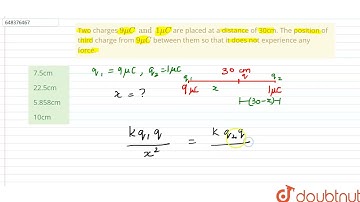 648376467
Two charges 9μC and 1μC are placed at a distance of 30cm. The position of
third charge from 9μC between them so that it does not experience any
force.
7.5cm
22.5cm
5.858cm
10cm
q₁ = 9μC, q₂ = 1μC
x = ?
30 cm
q₁ q q₂
9μC x 1μC
(30-x)
k q₁ q / x² = k q₂ q
doubtnut